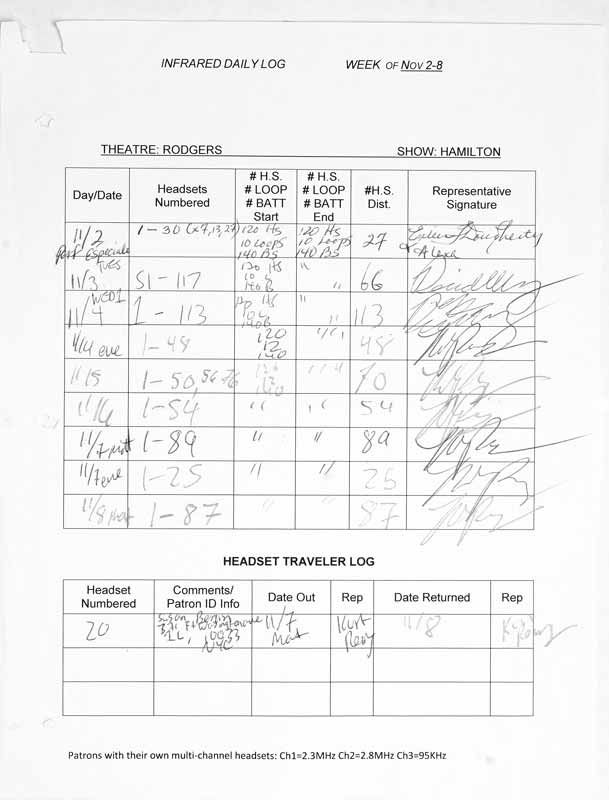 INFRARED DAILY LOG WEEK OF NOV 2-8
THEATRE: RODGERS SHOW: HAMILTON
Day/Date Headsets Numbered # H.S. # LOOP # BATT Start # H.S. # LOOP # BATT End #H.S. Dist. Representative Signature
11/2 1-30 (x7,13,27) 120 HS 10 Loops 140 BS 120 HS 10 Loops 140 BS 27 Dougherty & Alexa
TUES 11/3 51-117 120 HS " " 66
WED 1 11/4 1-113 " 113
11/4 eve 1-48 120 12 140 48
11/5 1-50, 56-76 120 12 140 70
11/6 1-54 " " 54
11/7 matt 1-89 " " 89
11/7 eve 1-25 " " 25
11/8 mat 1-87 " " 87
HEADSET TRAVELER LOG
Headset Numbered Comments/ Patron ID Info Date Out Rep Date Returned Rep
20 Susan NYC 11/7 Mat Kurt 11/8
Patrons with their own multi-channel headsets: Ch1=2.3MHz Ch2=2.8MHz Ch3=95KHz